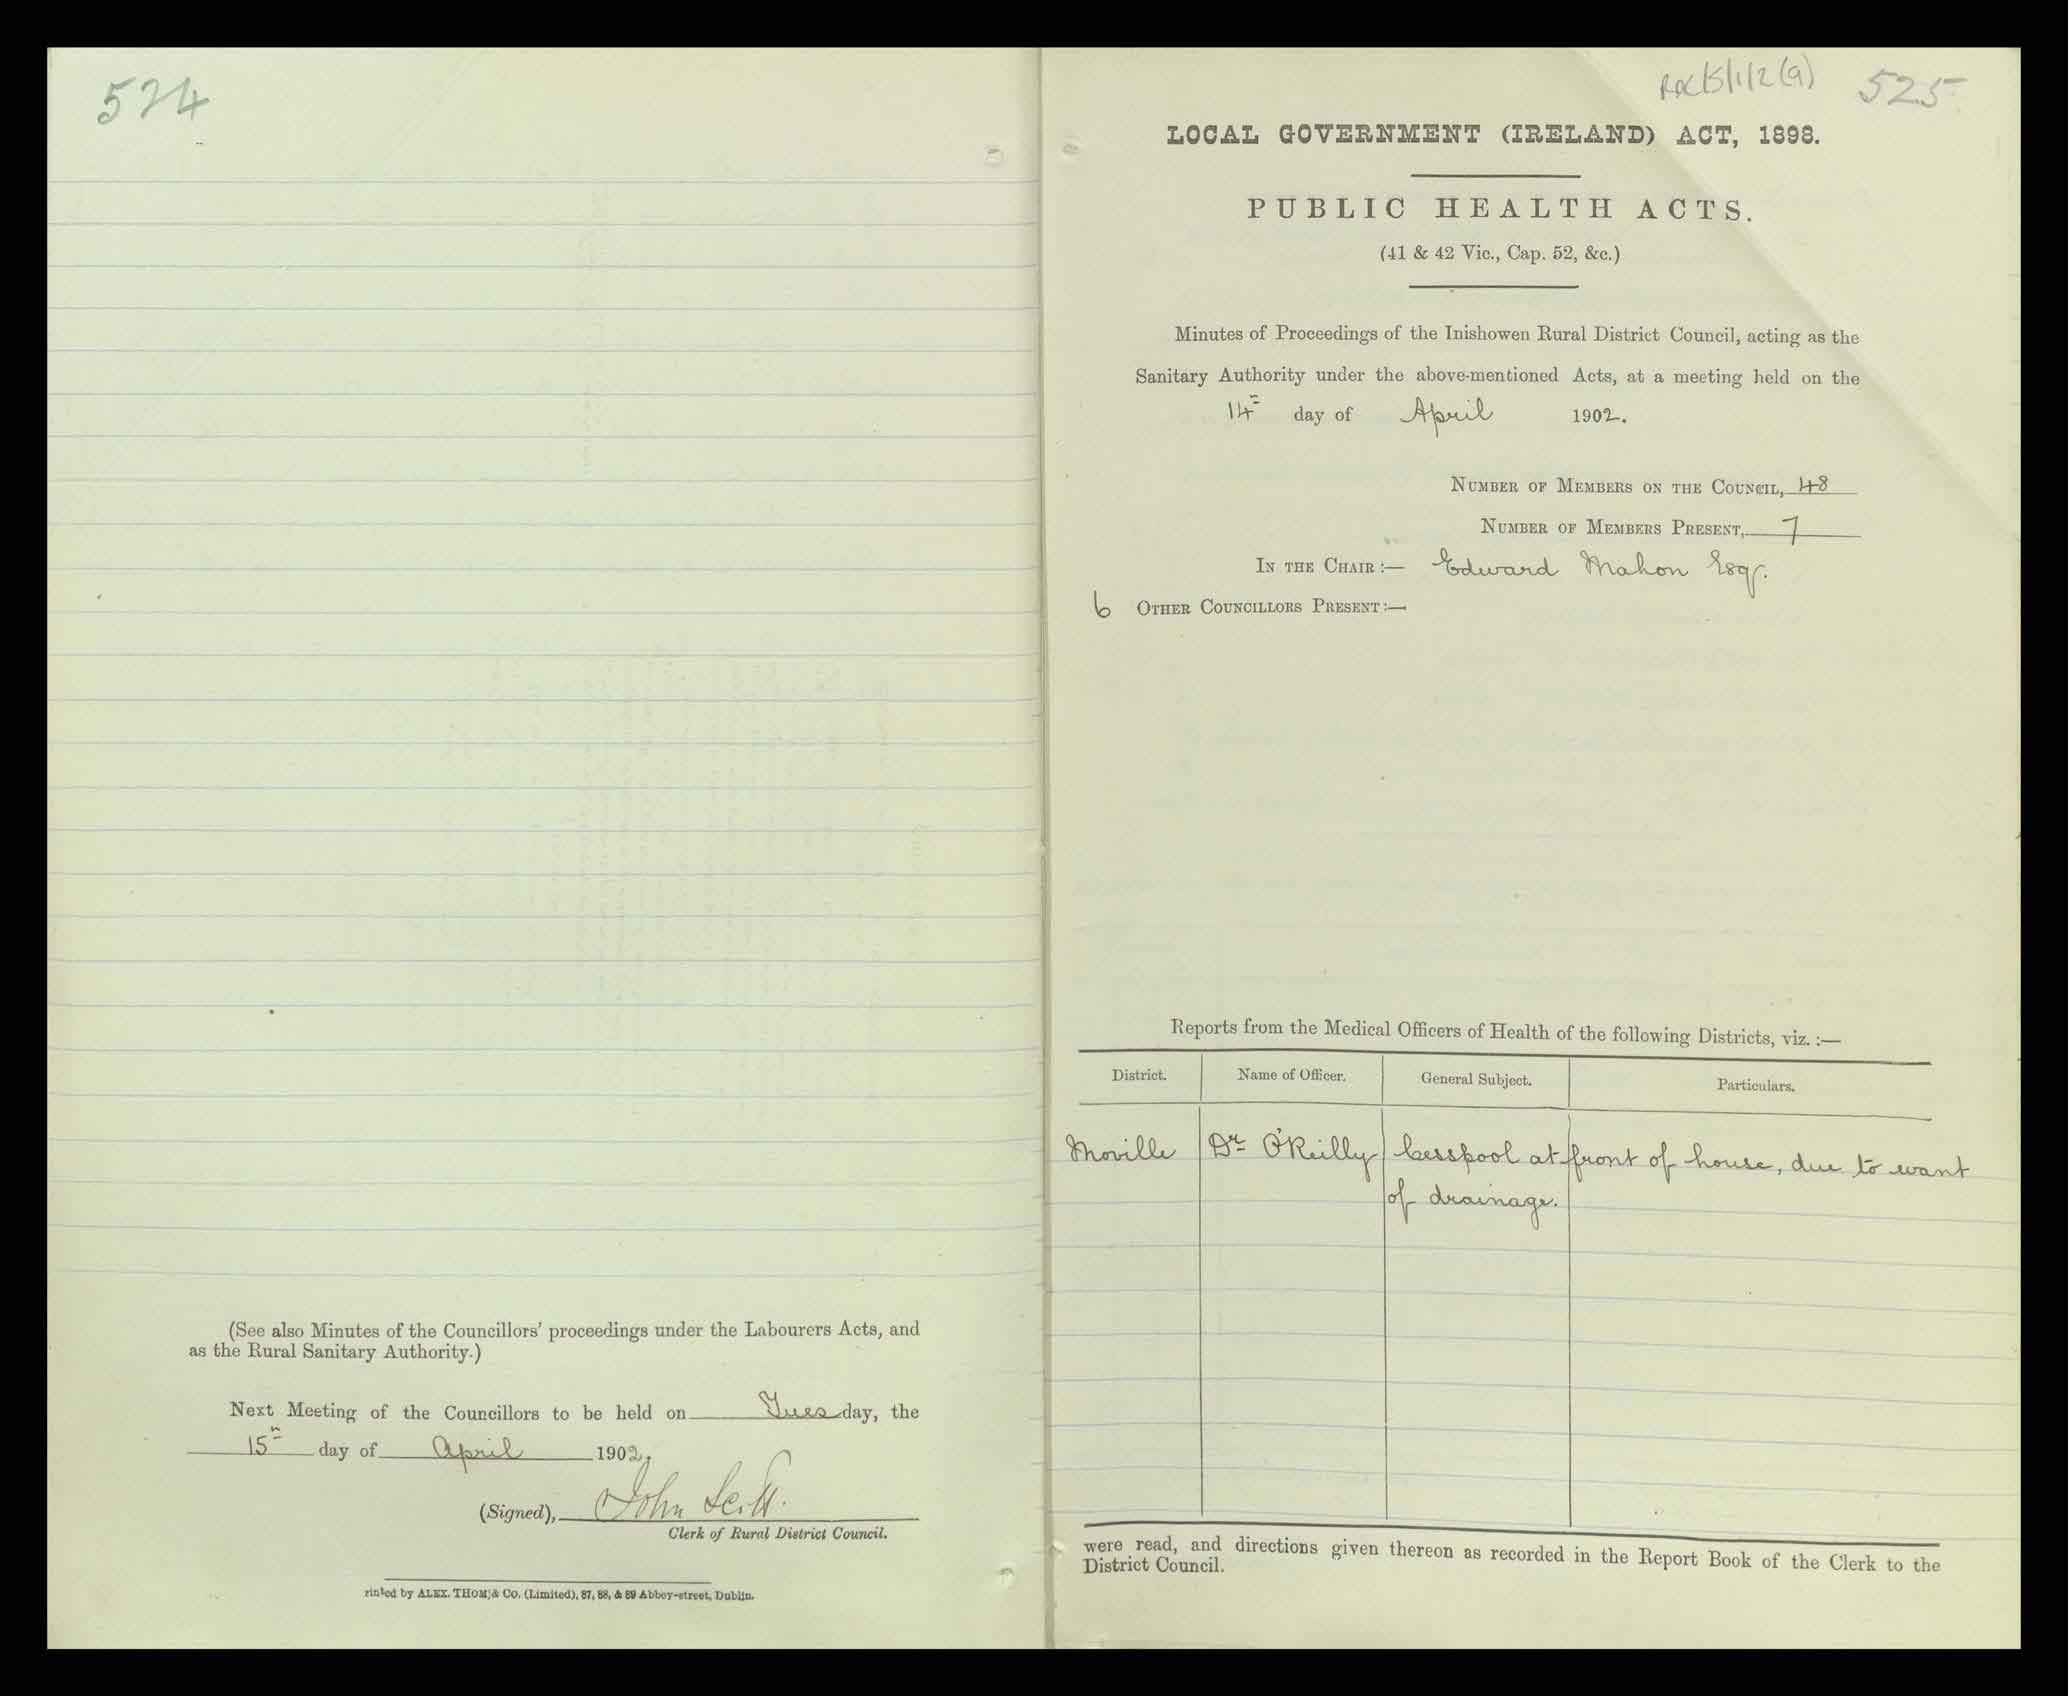 524
(See also Minutes of the Councillors' proceedings under the Labourers Acts, and
as the Rural Sanitary Authority.)
Next Meeting of the Councillors to be held on Tuesday, the
15th day of April 1902.
(Signed), John Scott.
Clerk of Rural District Council.
rinted by ALEX. THOM & CO. (Limited), 87, 88, & 89 Abbey-street, Dublin.
RDC/5/1/2(a) 525
LOCAL GOVERNMENT (IRELAND) ACT, 1898.
PUBLIC HEALTH ACTS.
(41 & 42 Vic., Cap. 52, &c.)
Minutes of Proceedings of the Inishowen Rural District Council, acting as the
Sanitary Authority under the above-mentioned Acts, at a meeting held on the
14th day of April 1902.
NUMBER OF MEMBERS ON THE COUNCIL, 48
NUMBER OF MEMBERS PRESENT, 7
IN THE CHAIR :— Edward Mahon Esqr.
6 OTHER COUNCILLORS PRESENT :—
Reports from the Medical Officers of Health of the following Districts, viz. :—
District. Name of Officer. General Subject. Particulars.
Moville Dr O'Reilly Cesspool at front of house, due to want
of drainage.
were read, and directions given thereon as recorded in the Report Book of the Clerk to the
District Council.